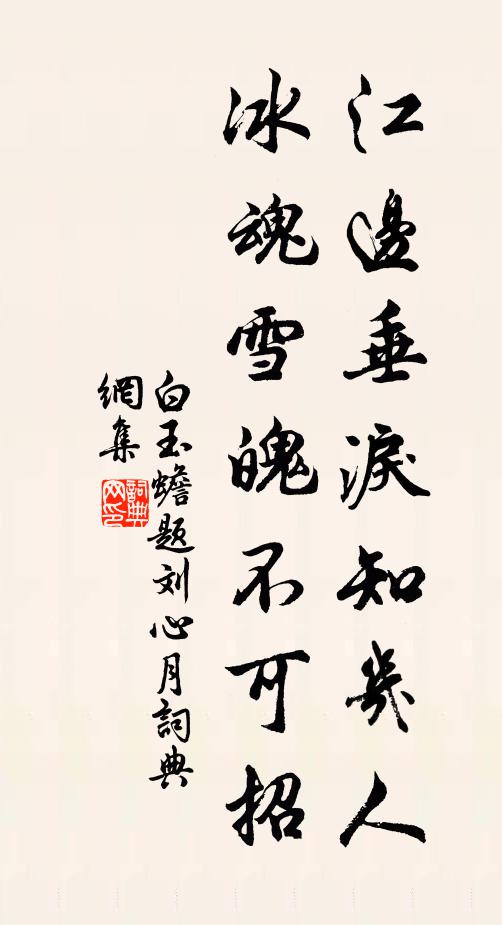 江邊垂淚知幾人
冰魂雪魄不可招
白玉蟾题刘心月詞典
網集
詞典
网印